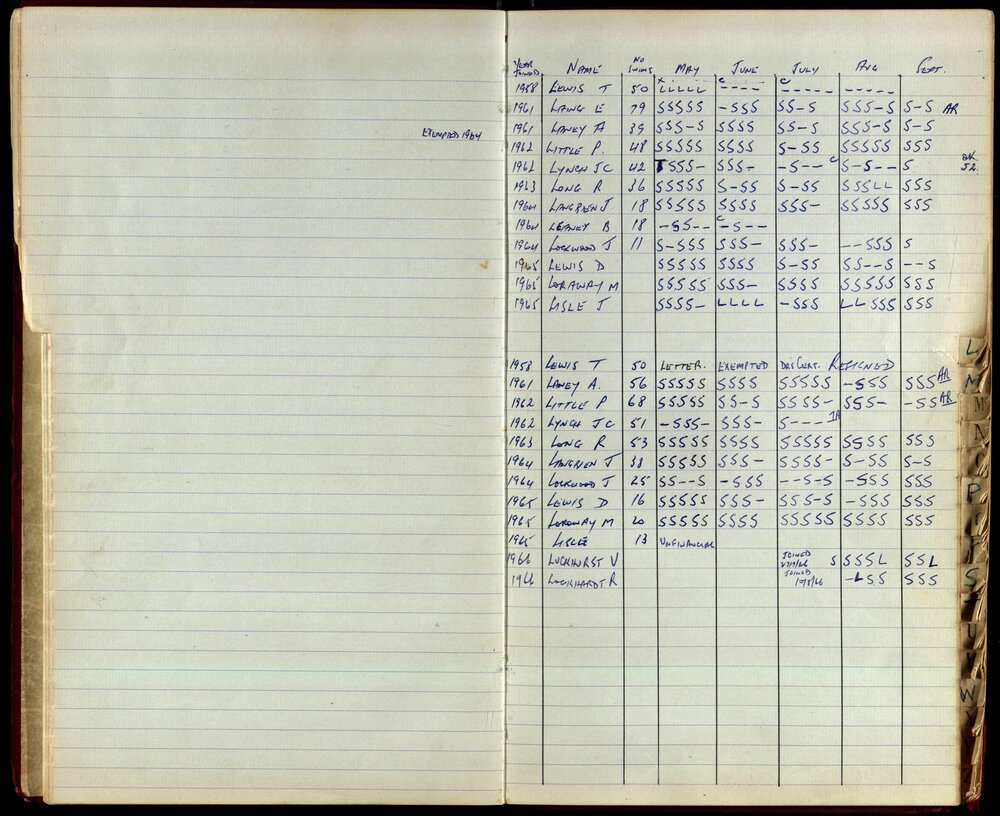 EXEMPTED 1964
YEAR JOINED NAME NO SWIMS MAY JUNE JULY AUG SEPT.
1958 LEWIS T 50 LLLLL C---- C----- -----
1961 LAING E 79 SSSSS -SSS SS-S SSS-S S-S AR
1961 LANEY A 39 SSS-S SSSS SS-S SSS-S S-S
1962 LITTLE P. 48 SSSSS SSSS S-SS SSSSS SSS
1962 LYNCH JC 42 SSS- SSS- -S-- C S-S-- S OK 52.
1963 LONG R 36 SSSSS S-SS S-SS SSSLL SSS
1964 LANGREN J 18 SSSSS SSSS SSS- SSSSS SSS
1964 LEANEY B 18 -SS-- C-S--
1964 LOCKWOOD J 11 S-SSS SSS- SSS- --SSS S
1965 LEWIS D SSSSS SSSS S-SS SS--S --S
1965 LORAWAY M SSSSS SSS- SSSS SSSSS SSS
1965 LISLE J SSSS- LLLL -SSS LLSSS SSS
1958 LEWIS T 50 LETTER. EXEMPTED DR'S CERT. RESIGNED
1961 LANEY A. 56 SSSSS SSSS SSSSS -SSS SSS AR
1962 LITTLE P 68 SSSSS SS-S SSSS- SSS- -SS AR
1962 LYNCH JC 51 -SSS- SSS- S----
1963 LONG R 53 SSSSS SSSS SSSSS SSSS SSS
1964 LANGREN J 38 SSSSS SSS- SSSS- S-SS S-S
1964 LOCKWOOD J 25 SS--S -SSS --S-S -SSS SSS
1965 LEWIS D 16 SSSSS SSS- SSSSS -SSS SSS
1965 LORAWAY M 20 SSSSS SSSS SSSSS SSSS SSS
1965 LISLE 13 UNFINANCIAL
1966 LUCKHURST V JOINED S SSSL SSL
1966 LUCKHARDT R JOINED -LSS SSS
L
M
M
N
P
S
T
U
W
Y